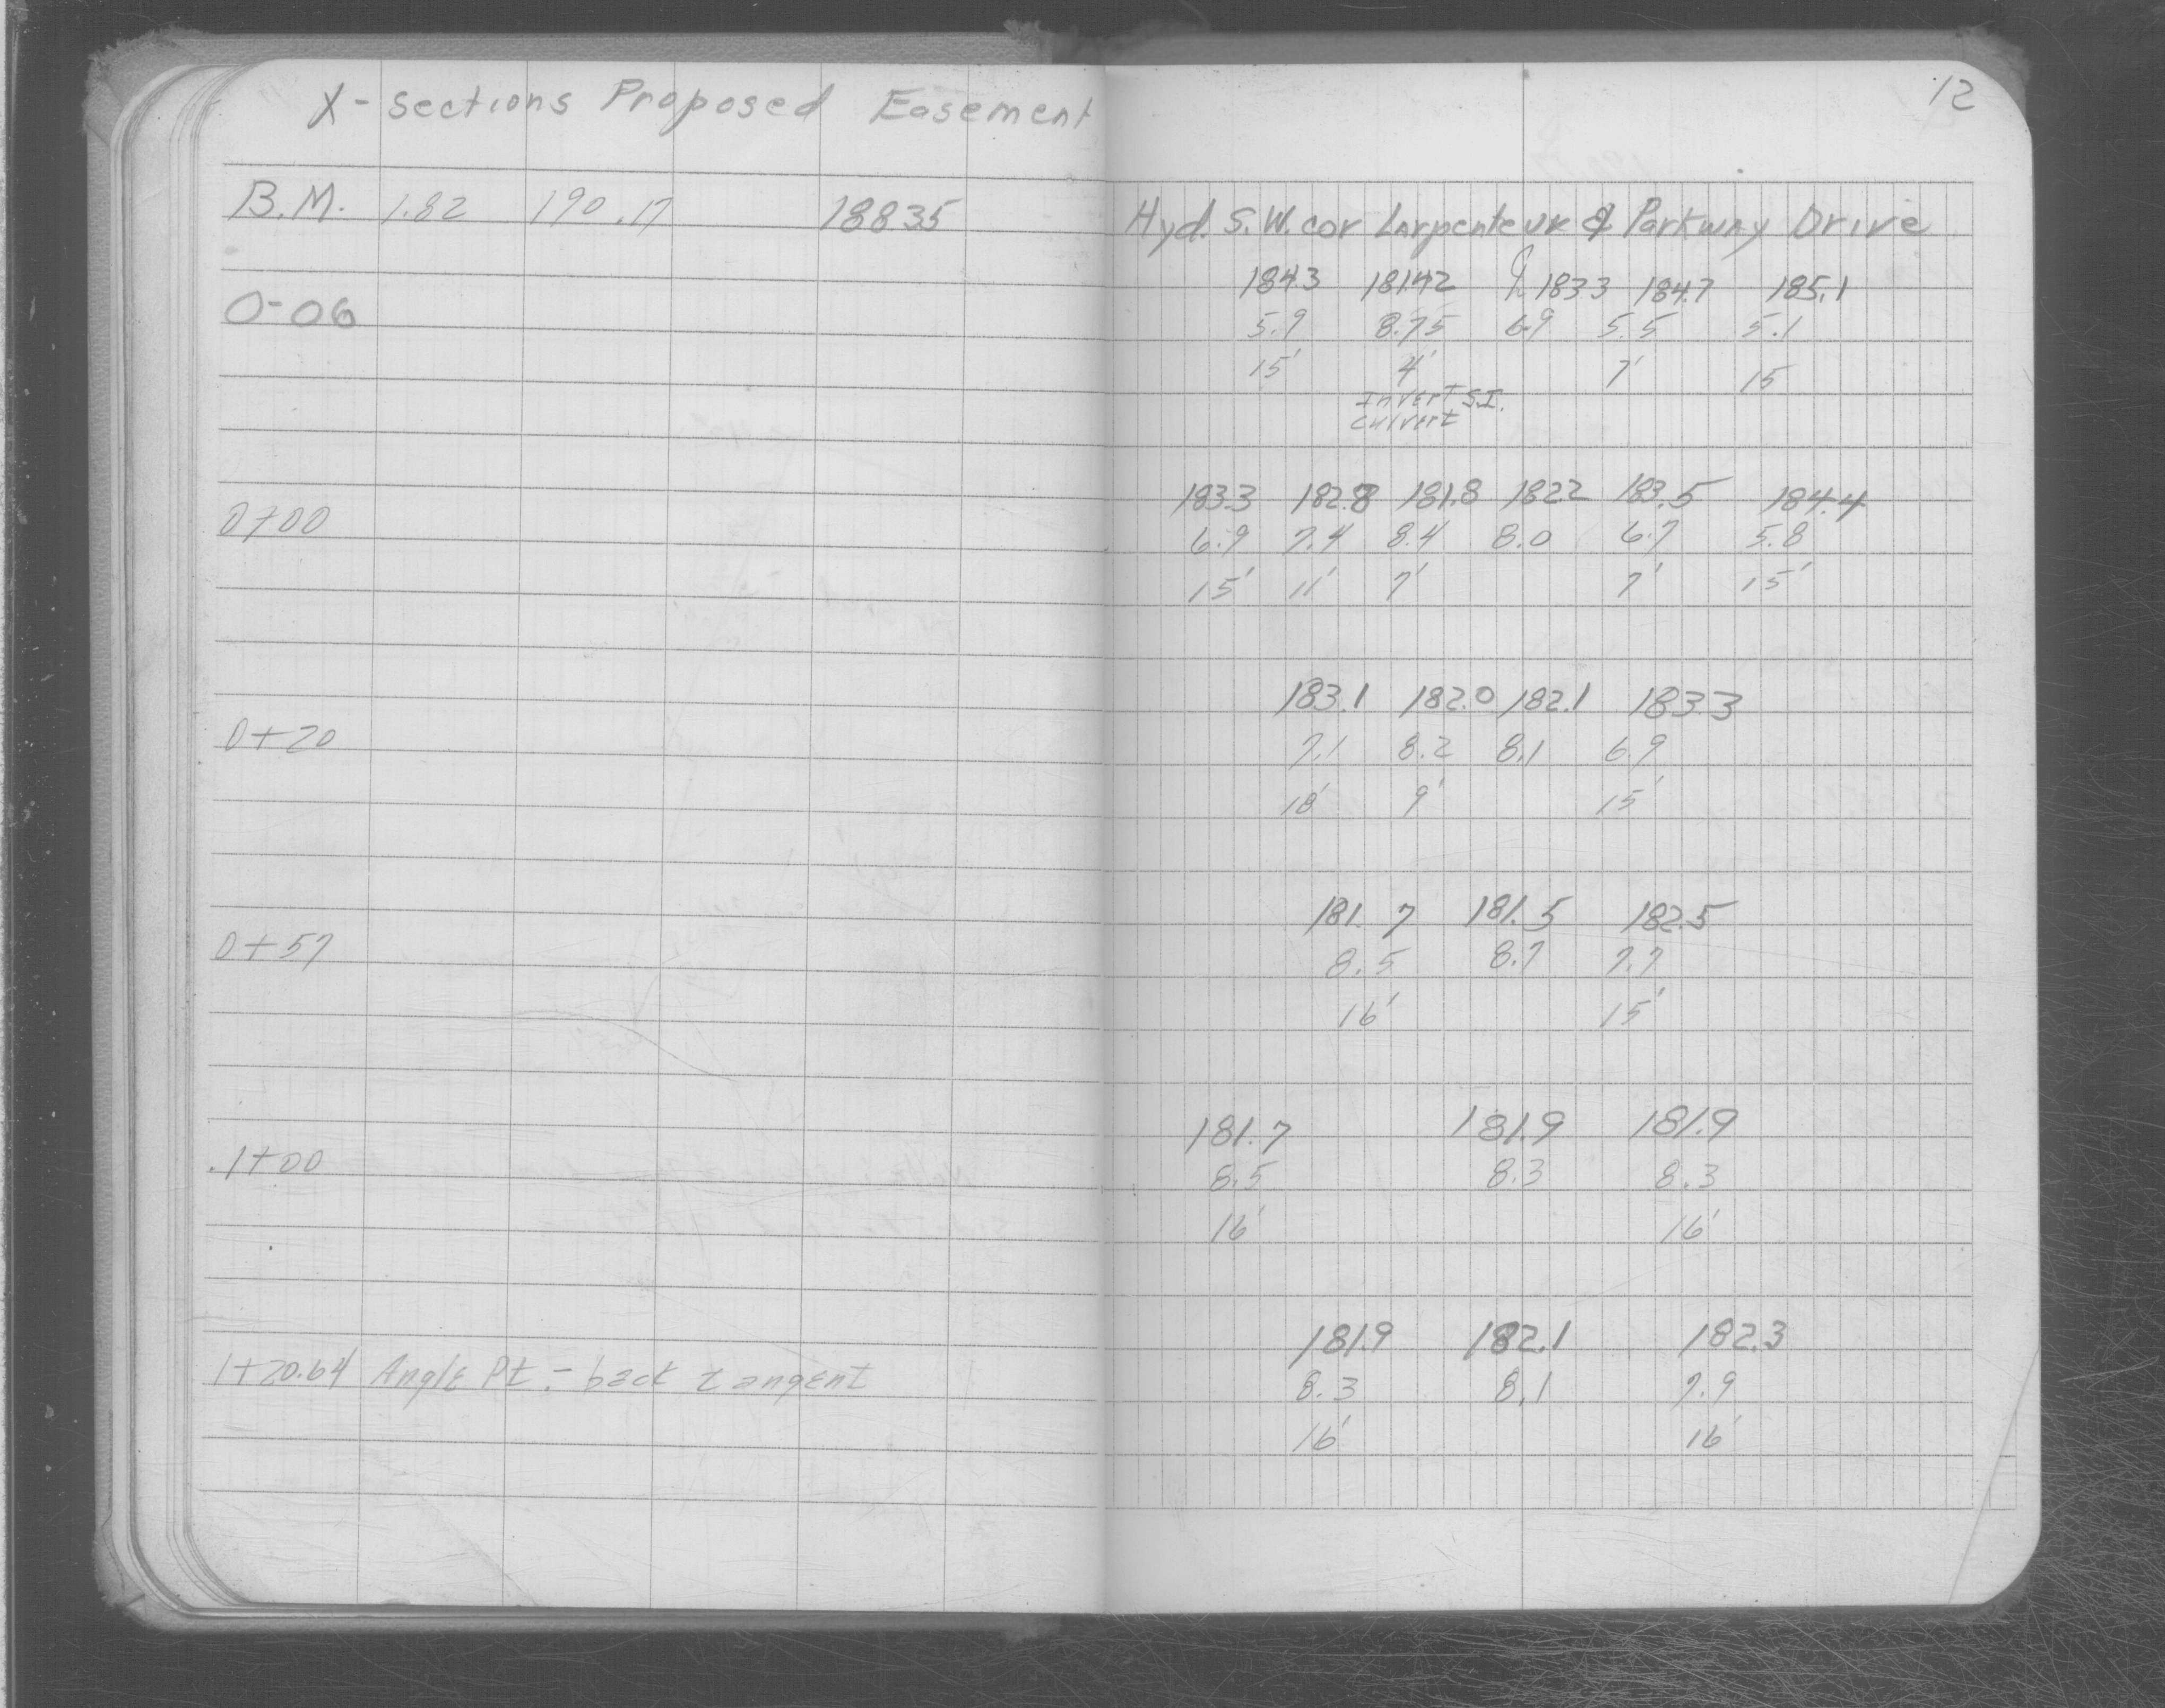 12
X-sections Proposed Easement
B.M. 1.82 190.17 188.35 Hyd. S.W. cor Larpenteur & Parkway Drive
184.3 181.42 ℄ 183.3 184.7 185.1
0-06 5.9 8.75 6.9 5.5 5.1
15' 4' 7' 15
Invert S.I.
Culvert
183.3 182.8 181.8 182.2 183.5 184.4
0+00 6.9 7.4 8.4 8.0 6.7 5.8
15' 11' 7' 7' 15'
183.1 182.0 182.1 183.3
0+20 7.1 8.2 8.1 6.9
18' 9' 15'
181.7 181.5 182.5
0+57 8.5 8.7 7.7
16' 15'
181.7 181.9 181.9
1+00 8.5 8.3 8.3
16' 16'
181.9 182.1 182.3
1+20.64 Angle Pt. - back tangent 8.3 8.1 7.9
16' 16'